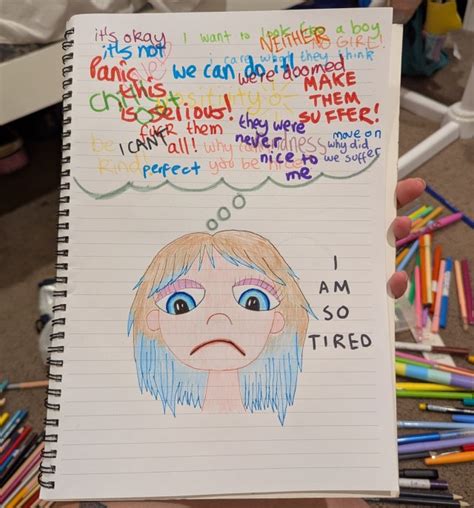 it's okay I want to look like a boy
it's not NEITHER NO GIRL!
i care what they think
Panic we can do it! we're doomed
this is so serious! MAKE THEM SUFFER!
Chill out positivity
fuck them they were never nice to me
be kind! I CAN'T all! why kindness move on
why did we suffer
perfect you be nice
I
AM
SO
TIRED